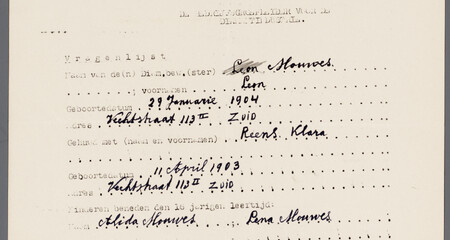 Vragenlijst
Naam van de(n) Diam.bew.(ster) Leon Mouwes
; voornamen Leon
Geboortedatum 29 Januarie 1904
Adres Vechtstraat 113 II Zuid
Gehuwd met (naam en voornamen) Reens Klara
Geboortedatum 11 April 1903
Adres Vechtstraat 113 II Zuid
Kinderen beneden den 16 jarigen leeftijd:
Naam Alida Mouwes Lena Mouwes